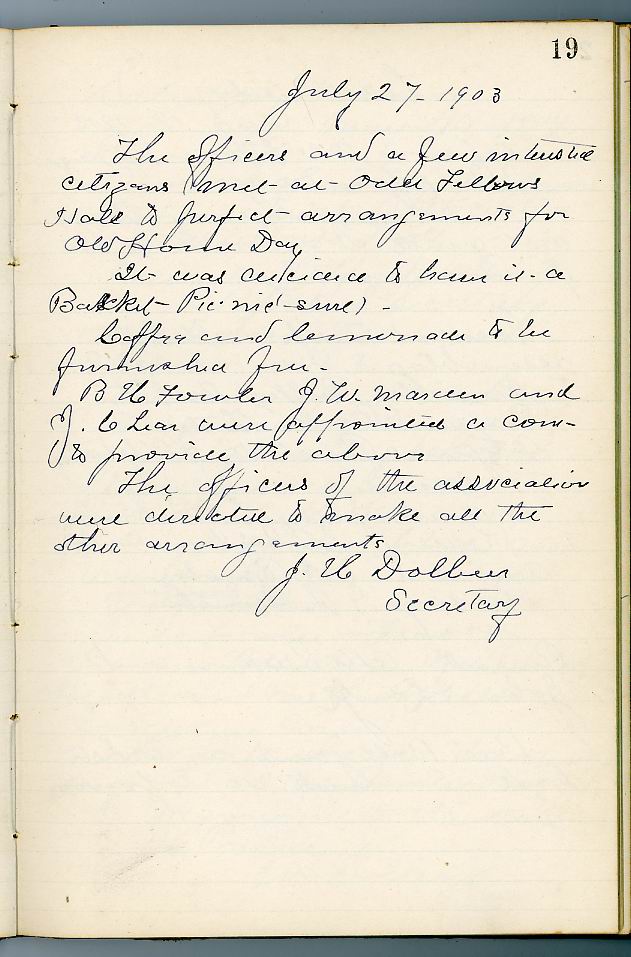 19
July 27- 1903
The officers and a few interested
citizens met at Odd Fellows
Hall to perfect arrangements for
Old Home Day
It was decided to have it a
Basket Picnic
Coffee and lemonade to be
furnished free.
B H Fowler J. W. Marden and
J. C Lear were appointed a com-
to provide the above
The officers of the association
were directed to make all the
other arrangements
J. H Dolbeer
Secretary